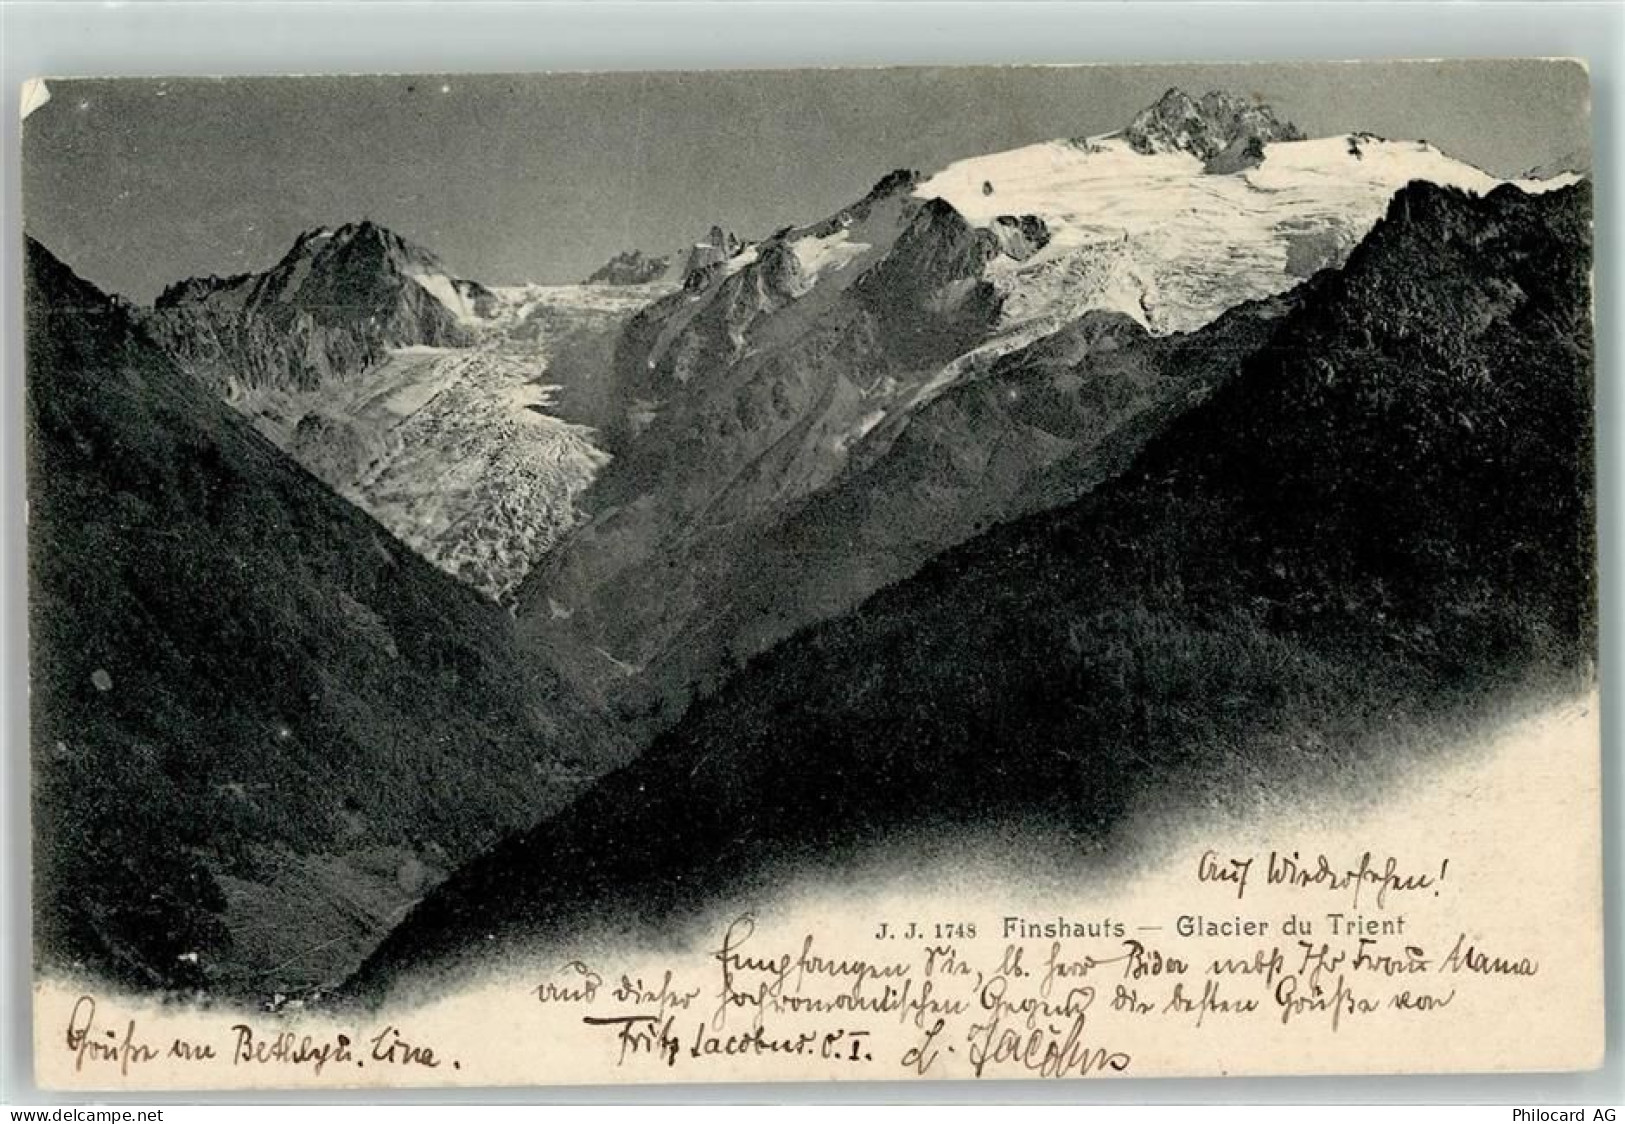 Auf Wiedersehen!
J. J. 1748 Finshauts — Glacier du Trient
Empfangen Sie, lb. Herr Bider nebst Ihr Frau Mama
aus dieser hochromantischen Gegend die besten Grüße von
Fritz Jacobus. O. I. L. Jacobus
Grüße an Bethly u. Lina.
www.delcampe.net
Philocard AG